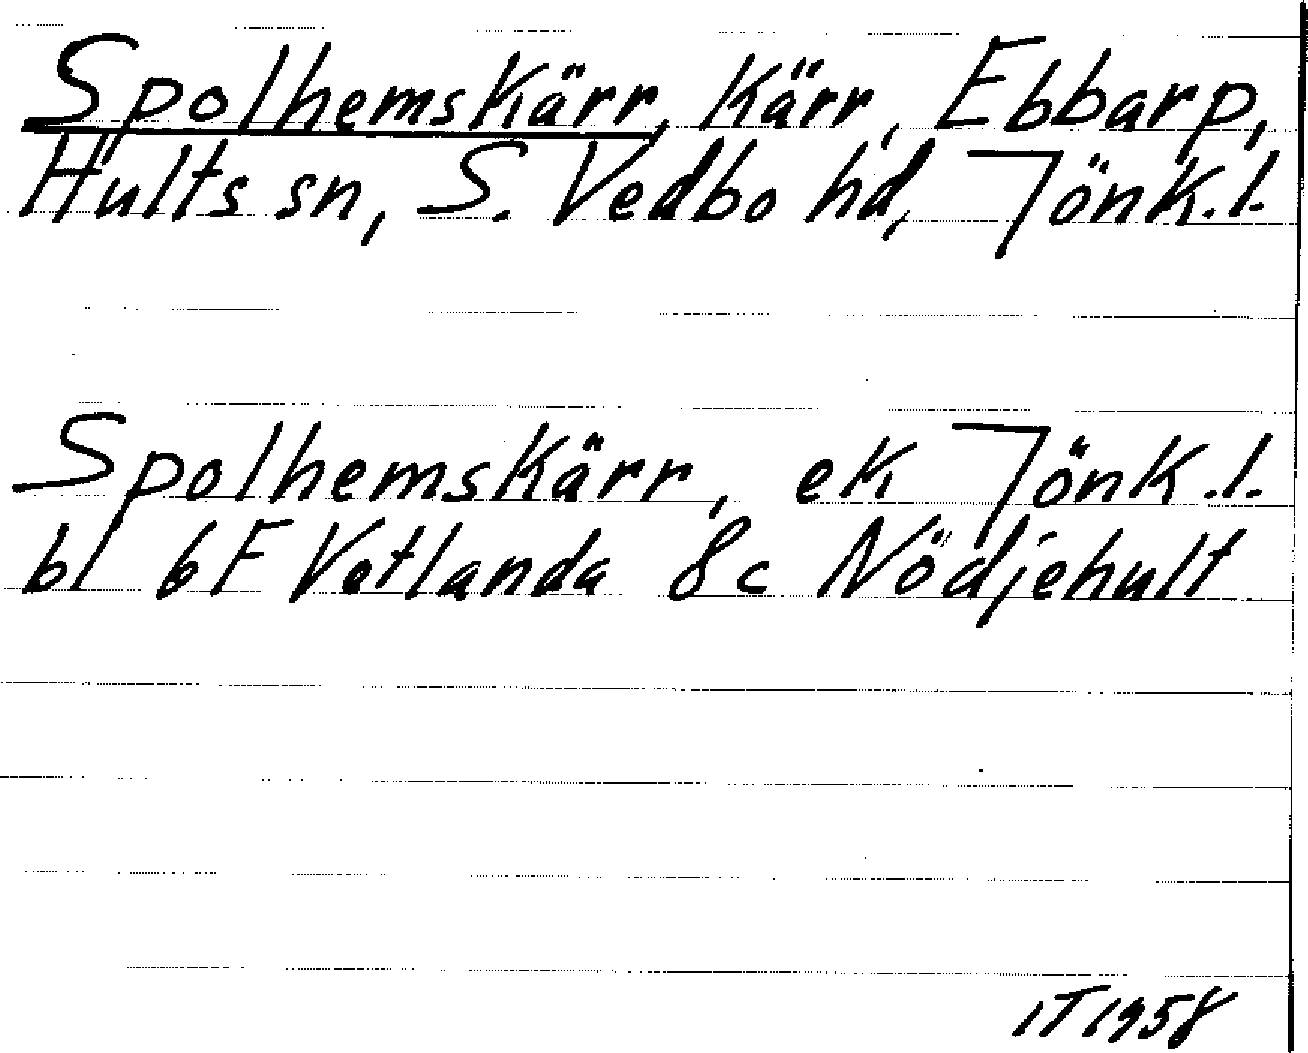 Spolhemskärr, Kärr, Ebbarp,
Hults sn, S. Vedbo hd, Jönk.l.
Spolhemskärr, ek Jönk.l.
bl 6F Vetlanda 8c Nödjehult
IT 1958